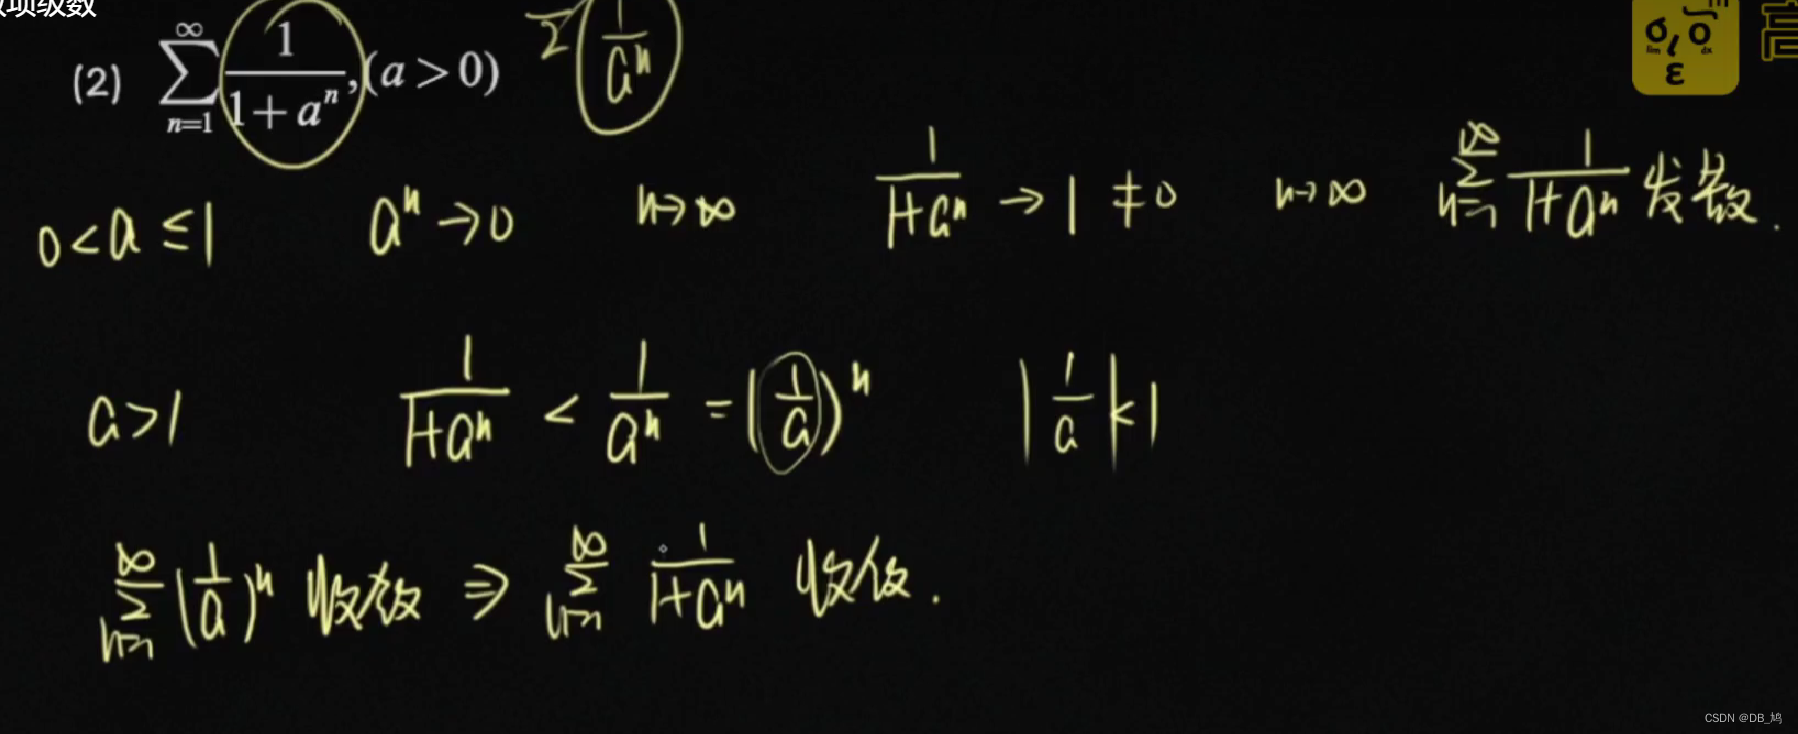 项级数
(2) \sum_{n=1}^{\infty} \frac{1}{1+a^n}, (a>0) \sum \frac{1}{a^n}
0<a≤1 a^n→0 n→∞ \frac{1}{1+a^n}→1≠0 n→∞ \sum_{n=1}^{\infty} \frac{1}{1+a^n} 发散.
a>1 \frac{1}{1+a^n} < \frac{1}{a^n} = (\frac{1}{a})^n |\frac{1}{a}|<1
\sum_{n=1}^{\infty} (\frac{1}{a})^n 收敛 ⇒ \sum_{n=1}^{\infty} \frac{1}{1+a^n} 收敛.
CSDN @DB_鸠